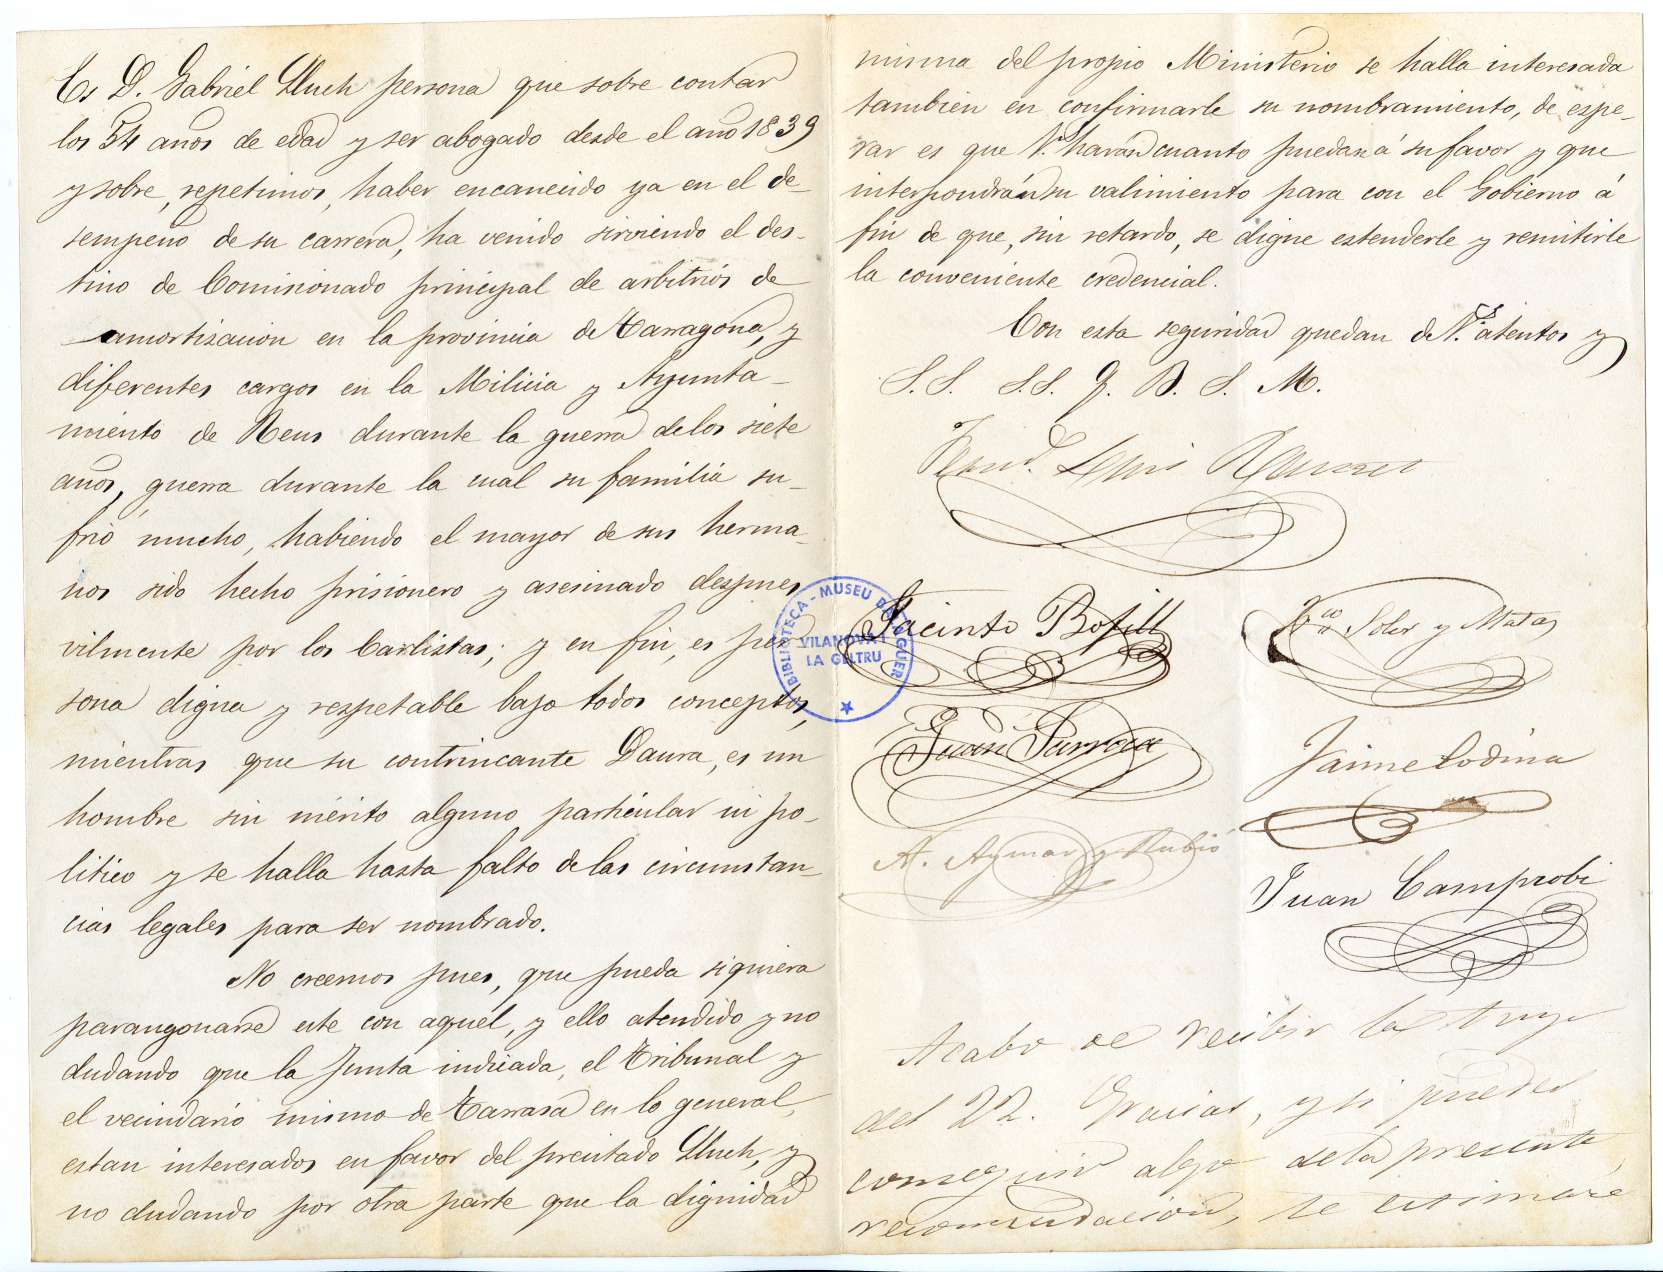 Es D. Gabriel Lluch persona que sobre contar
los 54 años de edad y ser abogado desde el año 1839
y sobre, repetimos, haber encanecido ya en el de-
sempeño de su carrera, ha venido sirviendo el des-
tino de Comisionado principal de arbitrios de
amortizacion en la provincia de Tarragona, y
diferentes cargos en la Milicia y Ayunta-
miento de Reus durante la guerra de los siete
años, guerra durante la cual su familia su-
frió mucho, habiendo el mayor de sus herma-
nos sido hecho prisionero y asesinado despues
vilmente por los Carlistas; y en fin, es per-
sona digna y respetable bajo todos conceptos,
mientras que su contrincante Daura, es un
hombre sin mérito alguno particular ni po-
litico y se halla hasta falto de las circunstan-
cias legales para ser nombrado.
No creemos pues, que pueda siquiera
parangonarse este con aquél, y ello atendido y no
dudando que la Junta indicada, el Tribunal y
el vecindario mismo de Tarrasa en lo general,
estan interesados en favor del precitado Lluch, y
no dudando por otra parte que la dignidad
misma del propio Ministerio se halla interesada
tambien en confirmarle su nombramiento, de espe-
rar es que V.s harán cuanto puedan á su favor y que
interpondrán su valimiento para con el Gobierno á
fin de que, sin retardo, se digne estenderle y remitirle
la conveniente credencial.
Con esta seguridad quedan de V.s atentos y
S.S. S.S. Q. B. S. M.
Luis
Jacinto Bofill
Soler y Matas
Juan
Jaime Codina
A. Aymar y Rubió
Juan Camprobi
Acabo de recibir la tuya
del 22. Gracias, y si puedes
conseguir algo de la presente
recomendacion, te estimaré
BIBLIOTECA - MUSEU BALAGUER
VILANOVA I
LA GELTRU